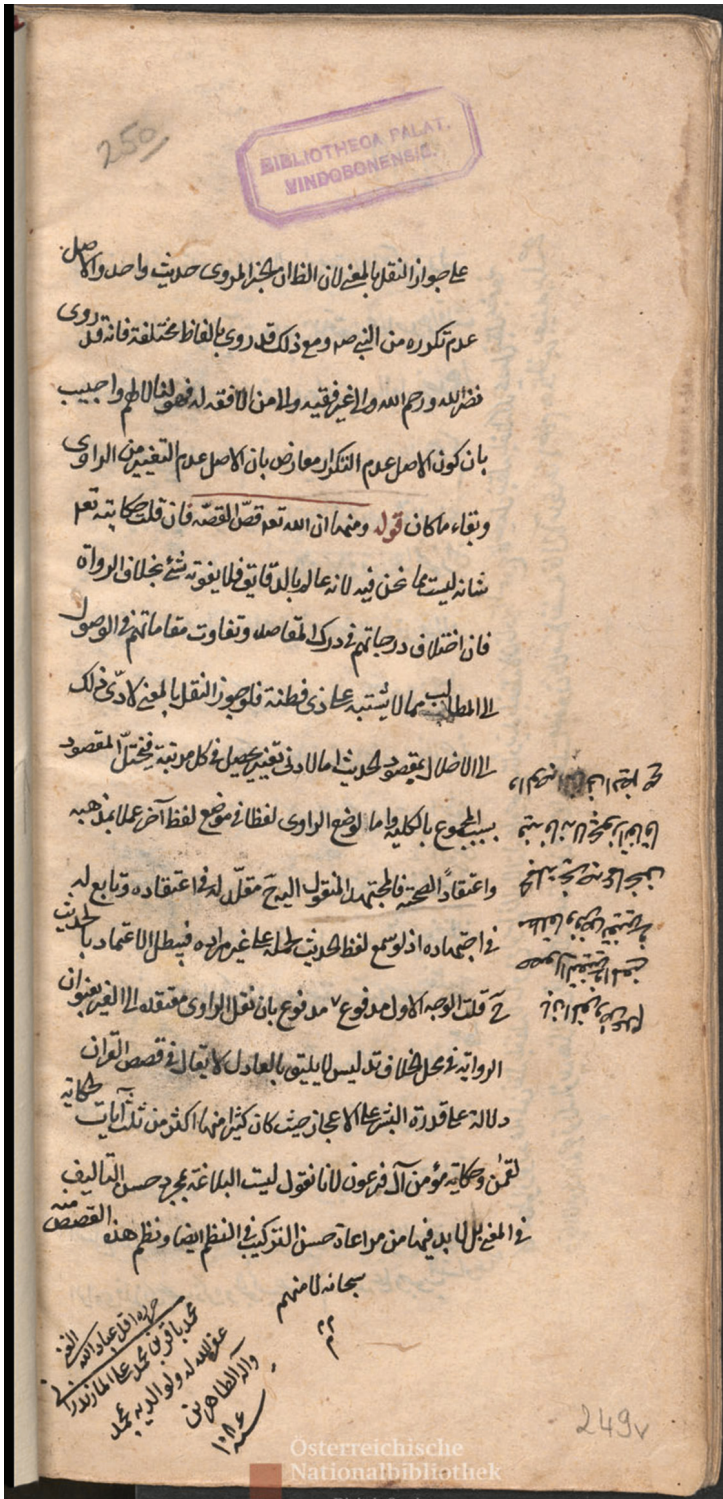 250
BIBLIOTHECA PALAT.
VINDOBONENSIS.
على جواز النقل بالمعنى لان الظاهر ان الخبر المروى حديث واحد والاصل
عدم تكرره من النبى صلم ومع ذلك قد روى بالفاظ مختلفة فانه قد روى
نضر الله ورحم الله والى غير فقيه والى من الافقه له فهو لنا لا لهم واجيب
بان كون الاصل عدم التكرار معارض بان الاصل عدم التغيير من الراوى
وبقاء ما كان قوله ومنها ان الله تعه قصّ القصّه فان قلت حكايته تعه
شانه ليست مما نحن فيه لانه عالم بالدقايق فلا يفوته شئ بخلاف الرواة
فان اختلاف درجاتهم فى درك المقاصد وتفاوت مقاماتهم فى الوصول
الى المطالب مما لا يشتبه على ذى فطنة فلو جوز النقل بالمعنى لادّى ذلك
الى الاخلال بمقصود الحديث اما لادنى تغيير يحصل فى كل مرتبة فيختلّ المقصود
بسبب المجموع بالكلية واما لوضع الراوى لفظا فى موضع لفظ آخر عملا بمذهبه
واعتقاداً لصحته فالمجتهد المنقول اليه ح مقلّد له فى اعتقاده وتابع له
فى اجتهاده اذ لو سمع لفظ الحديث لحمله على غير مراده فيبطل الاعتماد بالحديث
ح قلت الوجه الاول مدفوع مدفوع بان نقل الراوى معتقده الى الغير بعنوان
الرواية فى محل الخلاف تدليس لا يليق بالعادل لا يقال فى قصص القران
دلالة على قدرة البشر على الاعجاز حيث كان كثير منها اكثر من ثلث آيات لحكاية
لقمن وحكاية مؤمن آل فرعون لانا نقول ليست البلاغة بمجرد حسن التاليف
فى المعنى بل لا بد فيها من مراعاة حسن التركيب فى النظم ايضا ونظم هذه القصص منه
سبحانه لا منهم
حرره اقل عباد الله الغنى
محمد باقر بن محمد على المازندرانى
عفى الله له ولوالديه بمحمد
وآله الطاهرين
سنة ١٠٨٤
249v
Österreichische
Nationalbibliothek